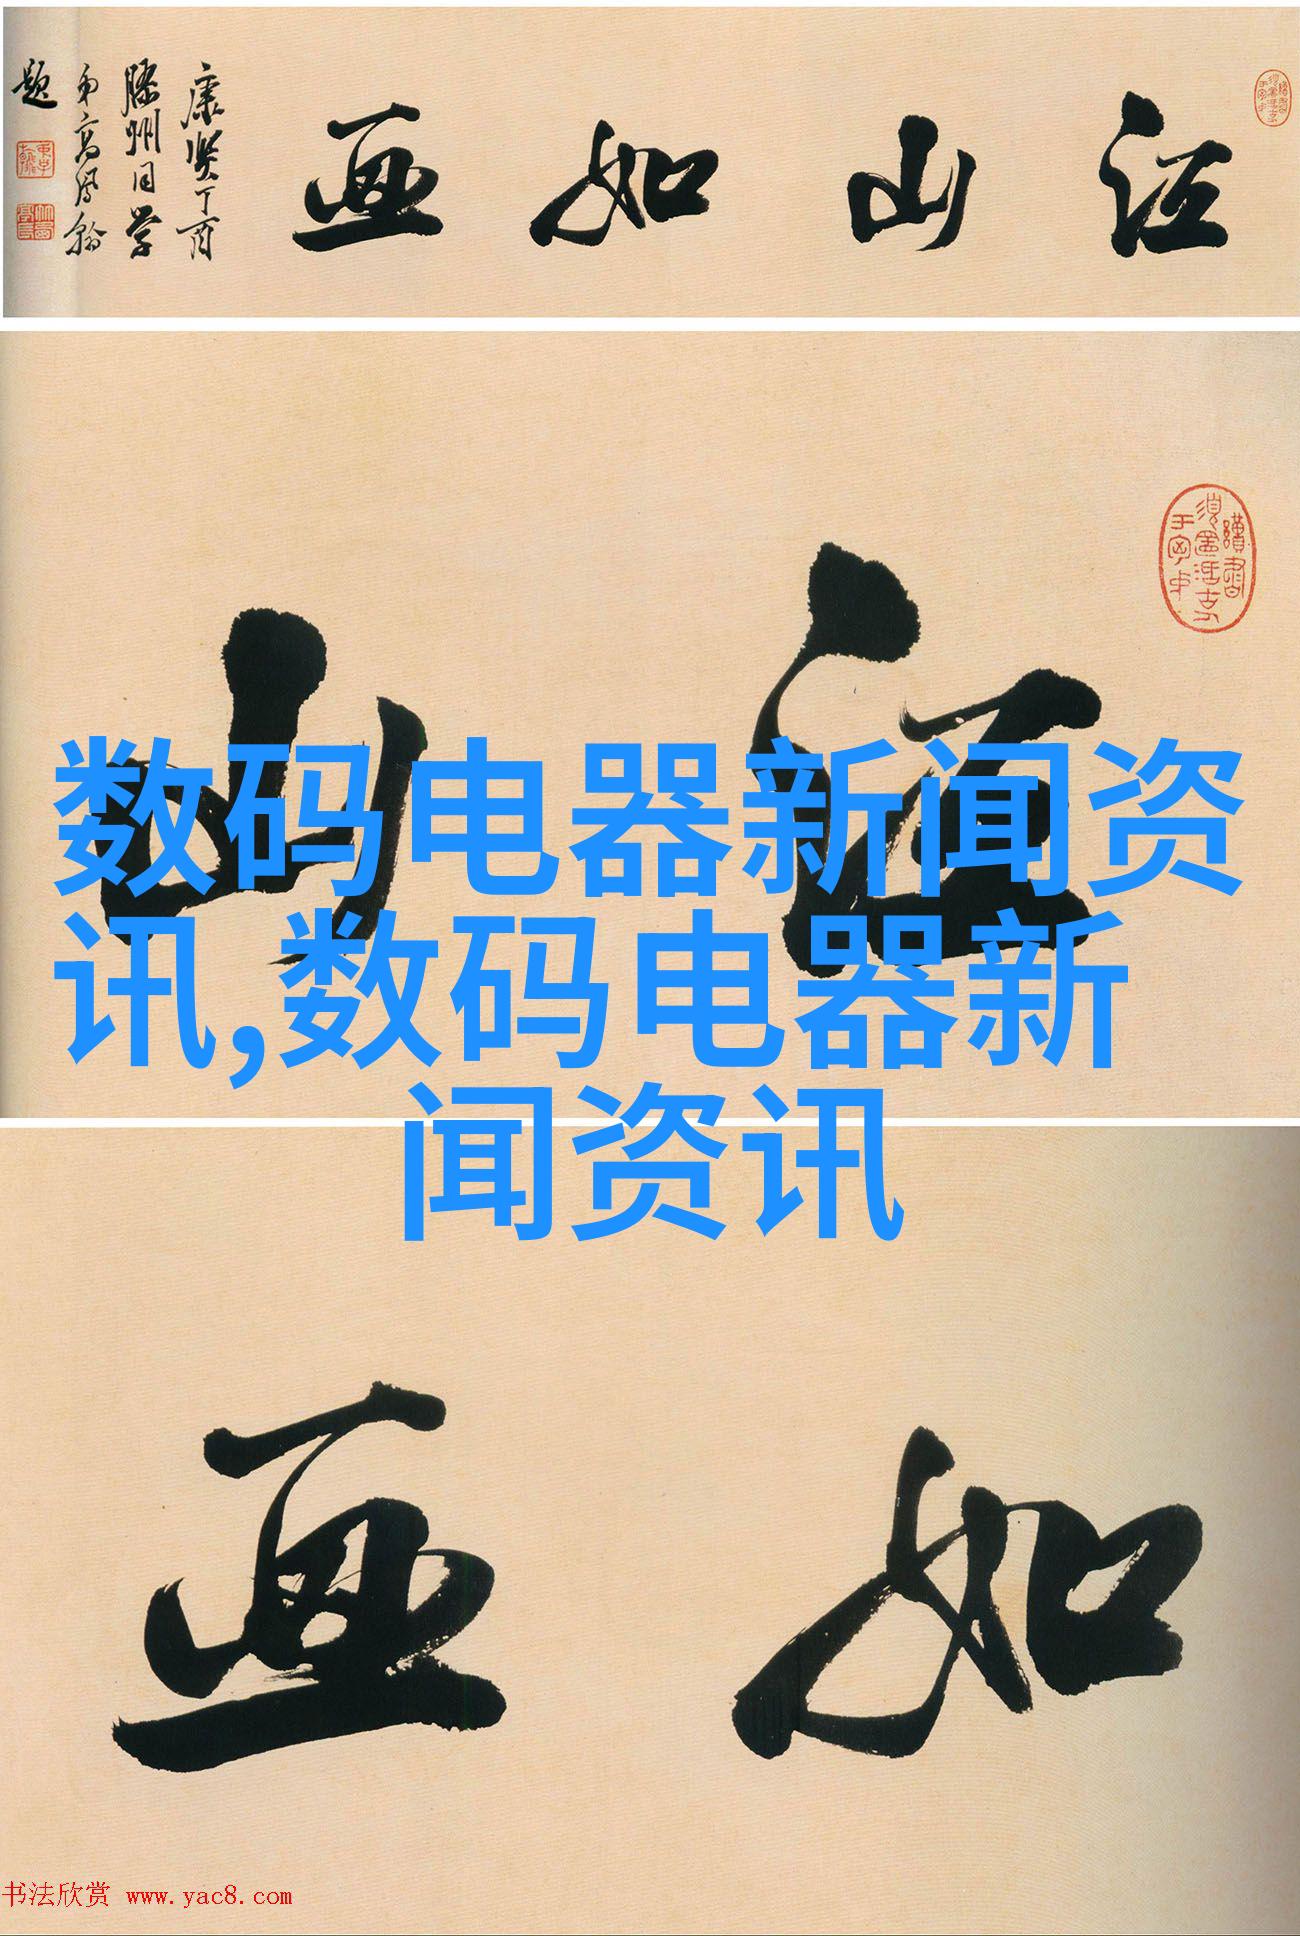 江山如画
康熙丁酉
滕州同学
弟高凤翰
题
江山
数码电器新闻资
讯,数码电器新
闻资讯
如画
书法欣赏 www.yac8.com